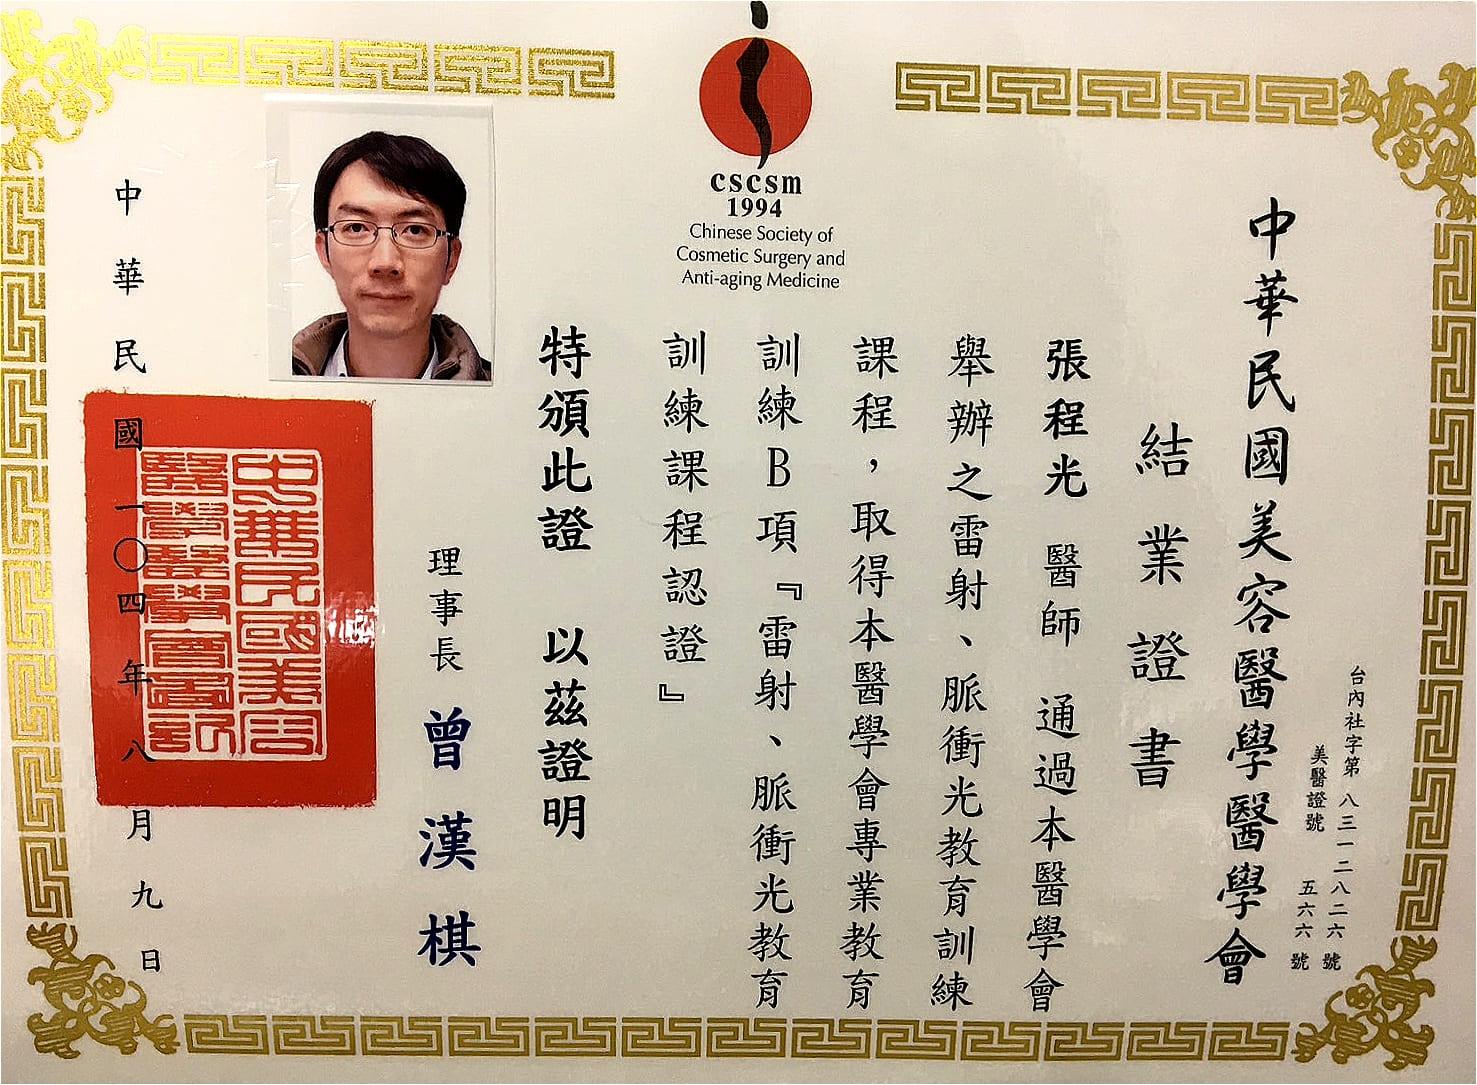 cscsm
1994
Chinese Society of
Cosmetic Surgery and
Anti-aging Medicine
台內社字第 八三一二八二六 號
美醫證號 五六六 號
中華民國美容醫學醫學會
結業證書
張程光 醫師 通過本醫學會
舉辦之雷射、脈衝光教育訓練
課程，取得本醫學會專業教育
訓練B項『雷射、脈衝光教育
訓練課程認證』
特頒此證 以茲證明
理事長 曾漢棋
中華民國美容
醫學醫學會圖記
中華民國一〇四年八月九日